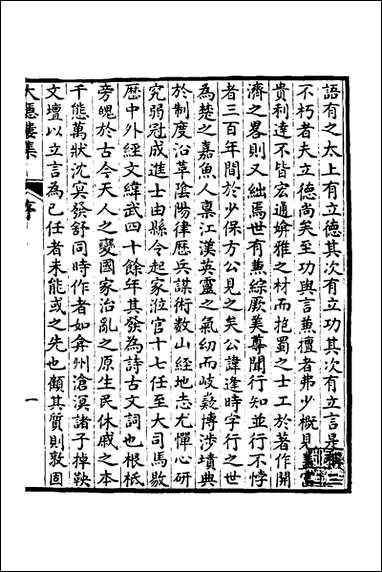 語有之太上有立德其次有立功其次有立言是稱三
不朽者夫立德尚矣至功與言兼檀者弗少概見蓋富
貴利達不皆宏通嫺雅之材而抱蜀之士工於著作開
濟之畧則又絀焉世有兼綜厥美尊聞行知並行不悖
者三百年間於少保方公見之矣公諱逢時字行之世
為楚之嘉魚人稟江漢英靈之氣幼而岐嶷博涉墳典
於制度沿革陰陽律歷兵謀術數山經地志尤憚心研
究弱冠成進士由縣令起家位官十七任至大司馬敭
歷中外經文緯武四十餘年其發為詩古文詞也根柢
旁魄於古今天人之變國家治亂之原生民休戚之本
千態萬狀沈實發舒同時作者如弇州滄溟諸子掉鞅
文壇以立言為己任者未能或之先也顧其質則敦固
大隱樓集
序
一